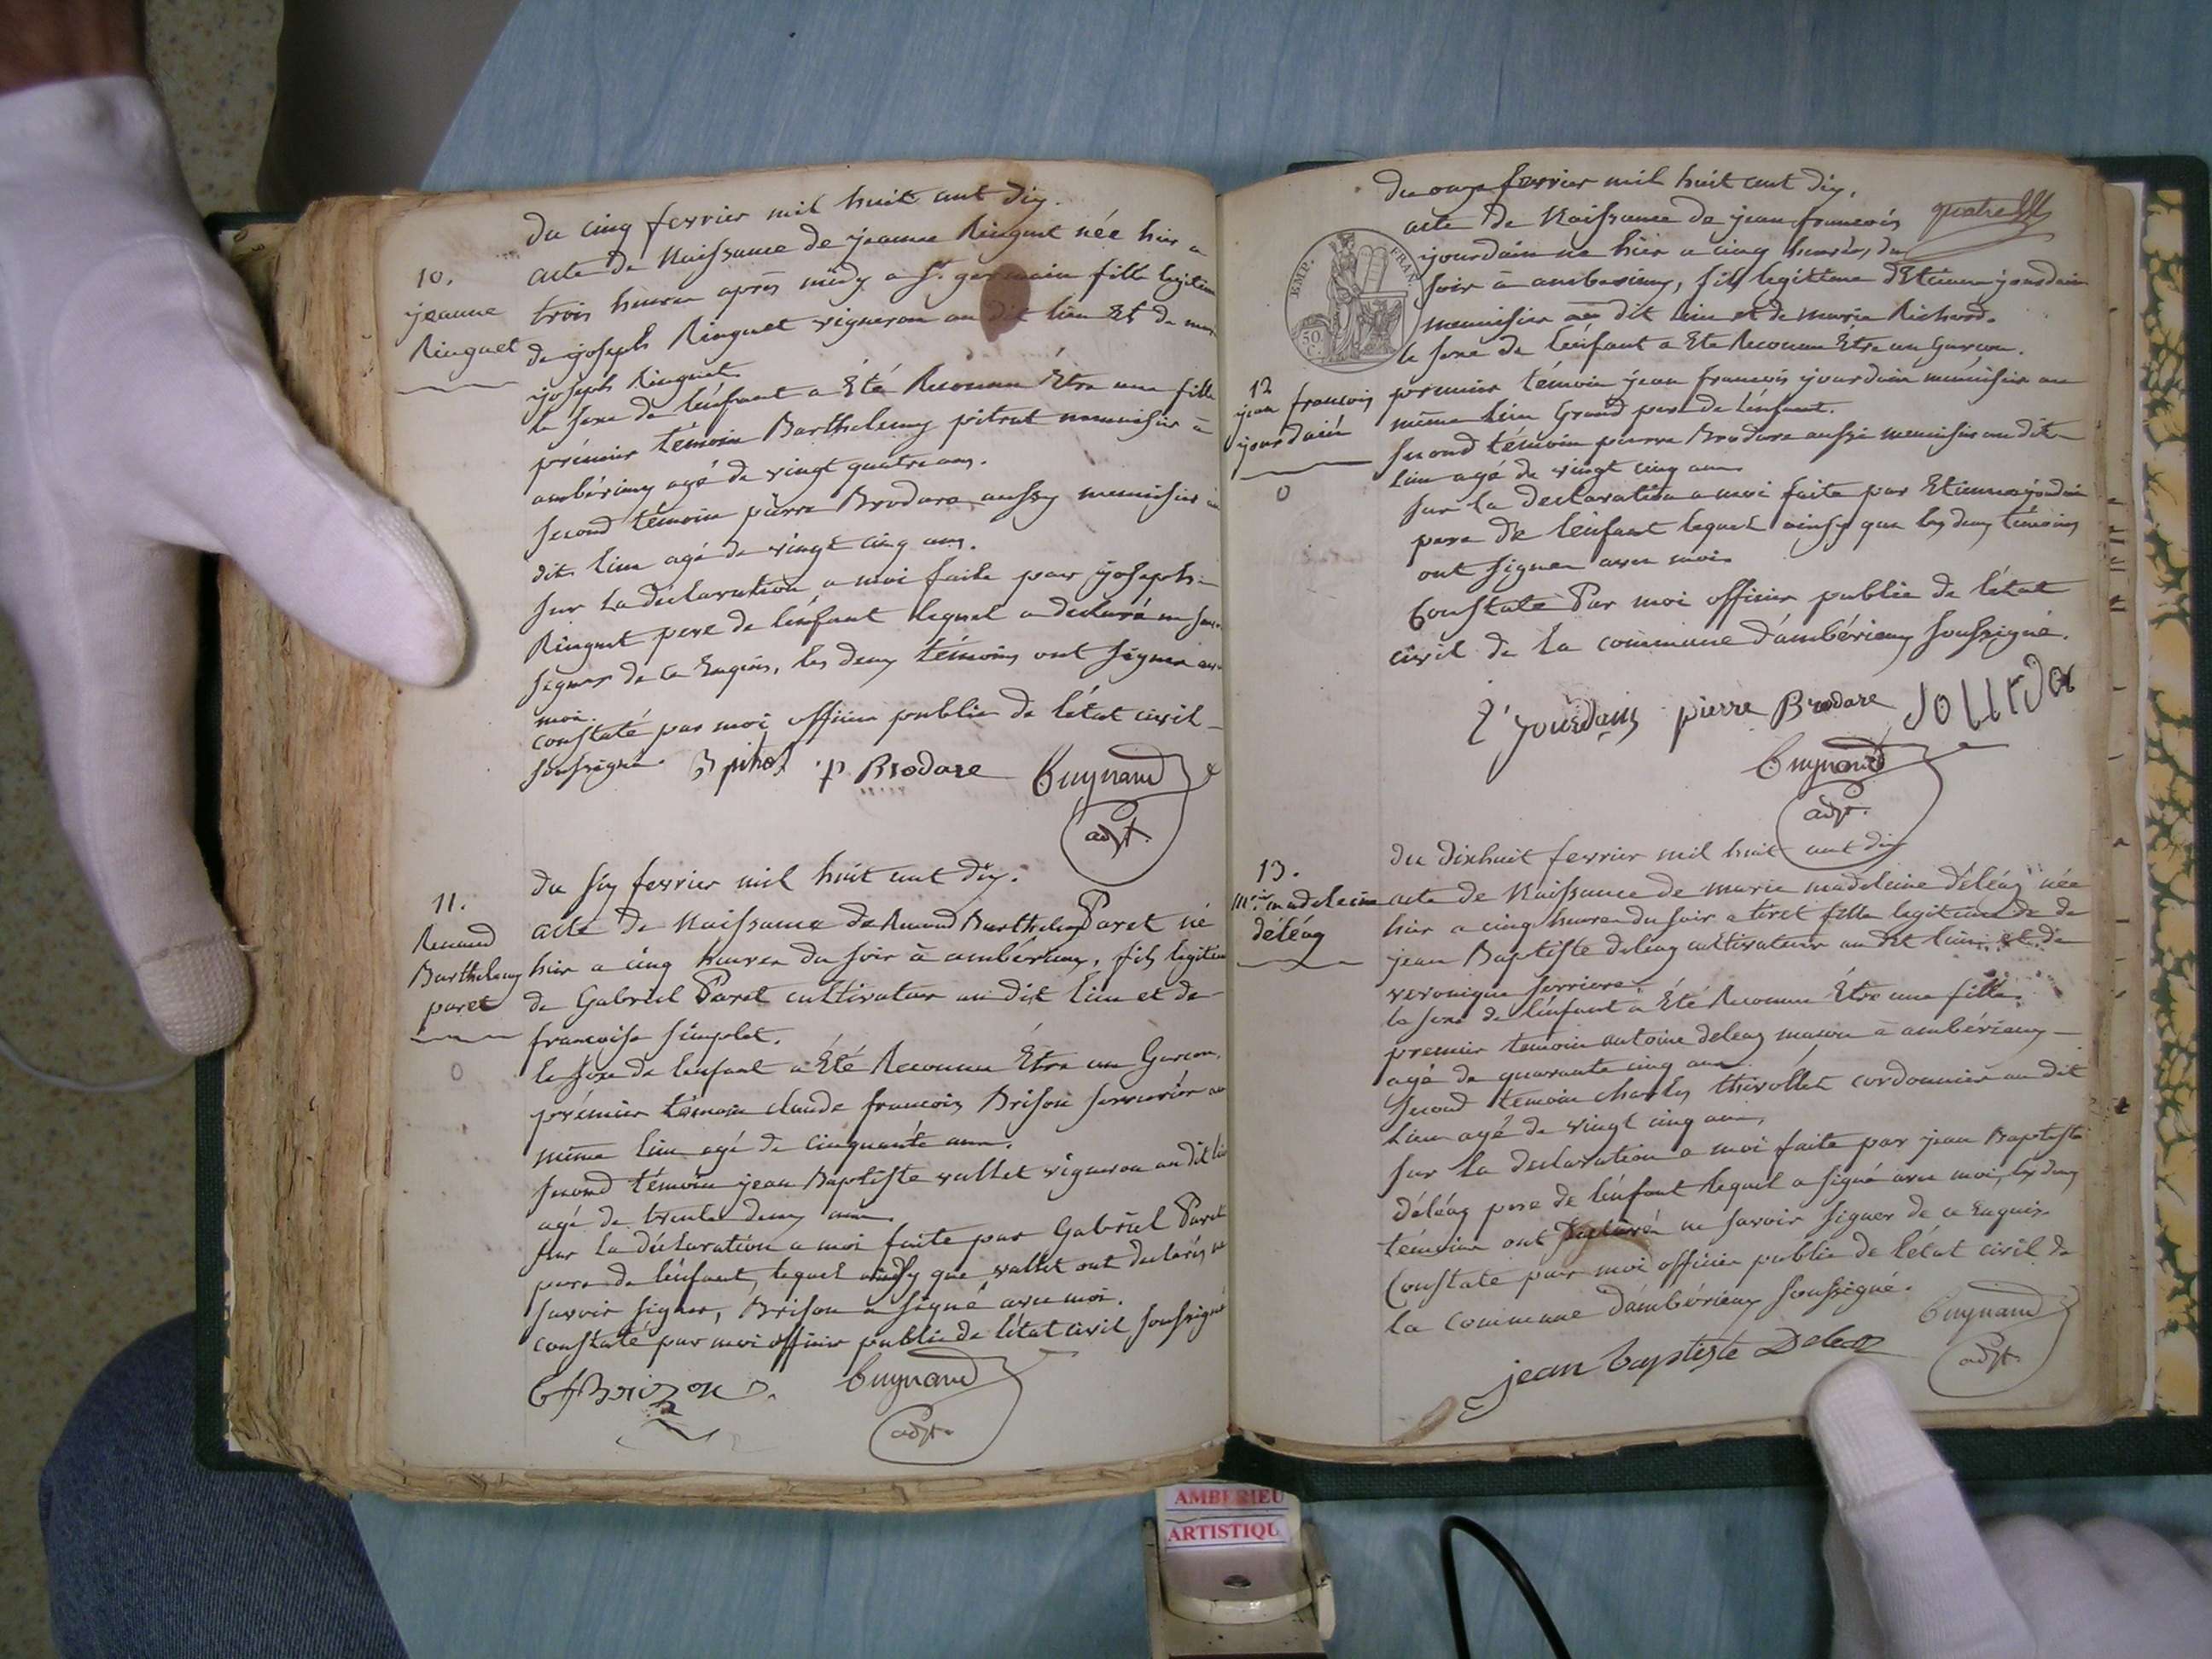 du cinq fevrier mil huit cent dix.
10.
jeanne
Ringuet
acte de Naissance de jeanne Ringuet née hier a
trois heures aprés midy a St. germain fille legitime
de joseph Ringuet vigneron au dit lieu Et de
joseph Ringuet
le sexe de lénfant a Eté Reconnu Etre une fille
prémier témoin Barthelemy pitrat menuisier à
ambérieux agé de vingt quatre ans.
second témoin pierre Brodare aussy menuisier au
dit lieu agé de vingt cinq ans.
sur La déclaration a moi faite par joseph
Ringuet pere de lénfant lequel a declaré ne savoir
signer de ce Enquis, les deux témoins ont signer avec
moi.
constaté par moi officier public de létat civil
soussigné. P Brodare Cuynand
adjt.
du six fevrier mil huit cent dix.
11.
Renaud
Barthelemy
paret
acte de Naissance de Renaud Barthelemy Paret né
hier a cinq heures du soir à ambérieux, fils legitime
de Gabriel Paret cultivateur au dit lieu et de
francoise simplet.
le sexe de lenfant a Eté Reconnu Etre un Garcon.
prémier témoin claude francois Brison serrurier au
même lieu agé de cinquante ans.
second témoin jean Baptiste vallet vigneron au dit lieu
agé de trente deux ans
sur la déclaration a moi faite par Gabriel Paret
pere de lénfant, lequel ainsy que vallet ont declarés ne
savoir signer, Brison a signé avec moi.
constaté par moi officier public de létat civil soussigné
Cuynand
adjt.
du onze fevrier mil huit cent dix.
quatre
EMP. FRAN.
50
C.
acte de Naissance de jean francois
jourdain né hier a cinq heures du
soir à ambérieux, fils legitime dEtienne jourdain
menuisier au dit lieu et de marie Richard.
le sexe de lénfant a Eté Reconnu Etre un Garcon.
12
jean francois
jourdain
prémier témoin jean francois jourdain menuisier au
même lieu Grand pere de lénfant.
second témoin pierre Brodare aussi menuisier au dit
lieu agé de vingt cinq ans
sur la declaration a moi faite par Etienne jourdain
pere de lénfant lequel ainsy que les deux témoins
ont signer avec moi
Constaté Par moi officier public de létat
civil de la commune d'ambérieux soussigné.
jourdain pierre Brodare
Cuynand
adjt.
du dixhuit fevrier mil huit cent dix
13.
Mrie madeleine
déléaz
acte de Naissance de marie madeleine déléaz née
hier a cinq heures du soir a tiret fille legitime de
jean Baptiste deleaz cultivateur au dit lieu et de
veronique ferriere.
le sexe de lénfant a Eté Reconnu Etre une fille.
premier témoin antoine deleaz macon à ambérieux
agé de quarante cinq ans.
second temoin charles thivollet cordonnier au dit
Lieu agé de vingt cinq ans,
sur la declaration a moi faite par jean Baptiste
déléaz pere de lénfant lequel a signé avec moi, les deux
témoins ont declaré ne savoir signer de ce Enquis.
Constaté par moi officier public de létat civil de
la commune d'ambérieux soussigné.
Cuynand
adjt.
jean baptiste Deleaz
AMBERIEU
ARTISTIQU